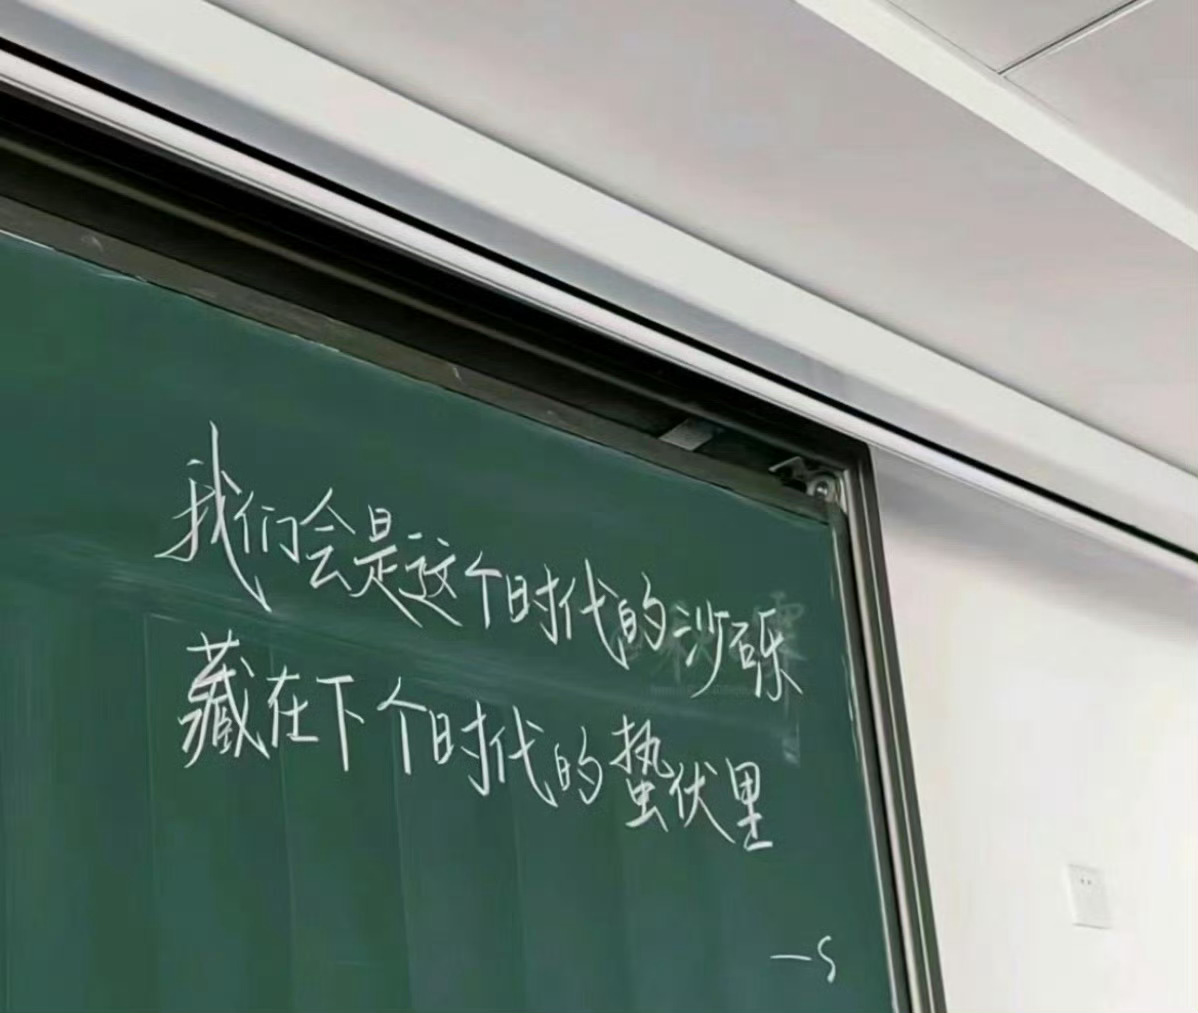 我们会是这个时代的沙砾
藏在下个时代的蛰伏里
—S